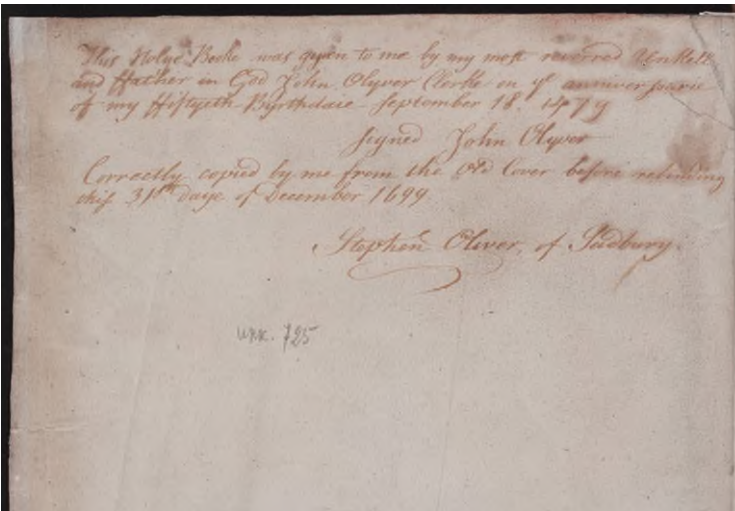 This Holye Booke was gyven to me by my most reverred Unkell
and ffather in God John Olyver Clerke on yͤ anniversarie
of my ffiftyeth Byrthdaie September 18. 1479
signed John Olyver
Correctly copied by me from the Old Cover before rebinding
this 31st daye of December 1699
Stephen Oliver, of Sudbury.
725